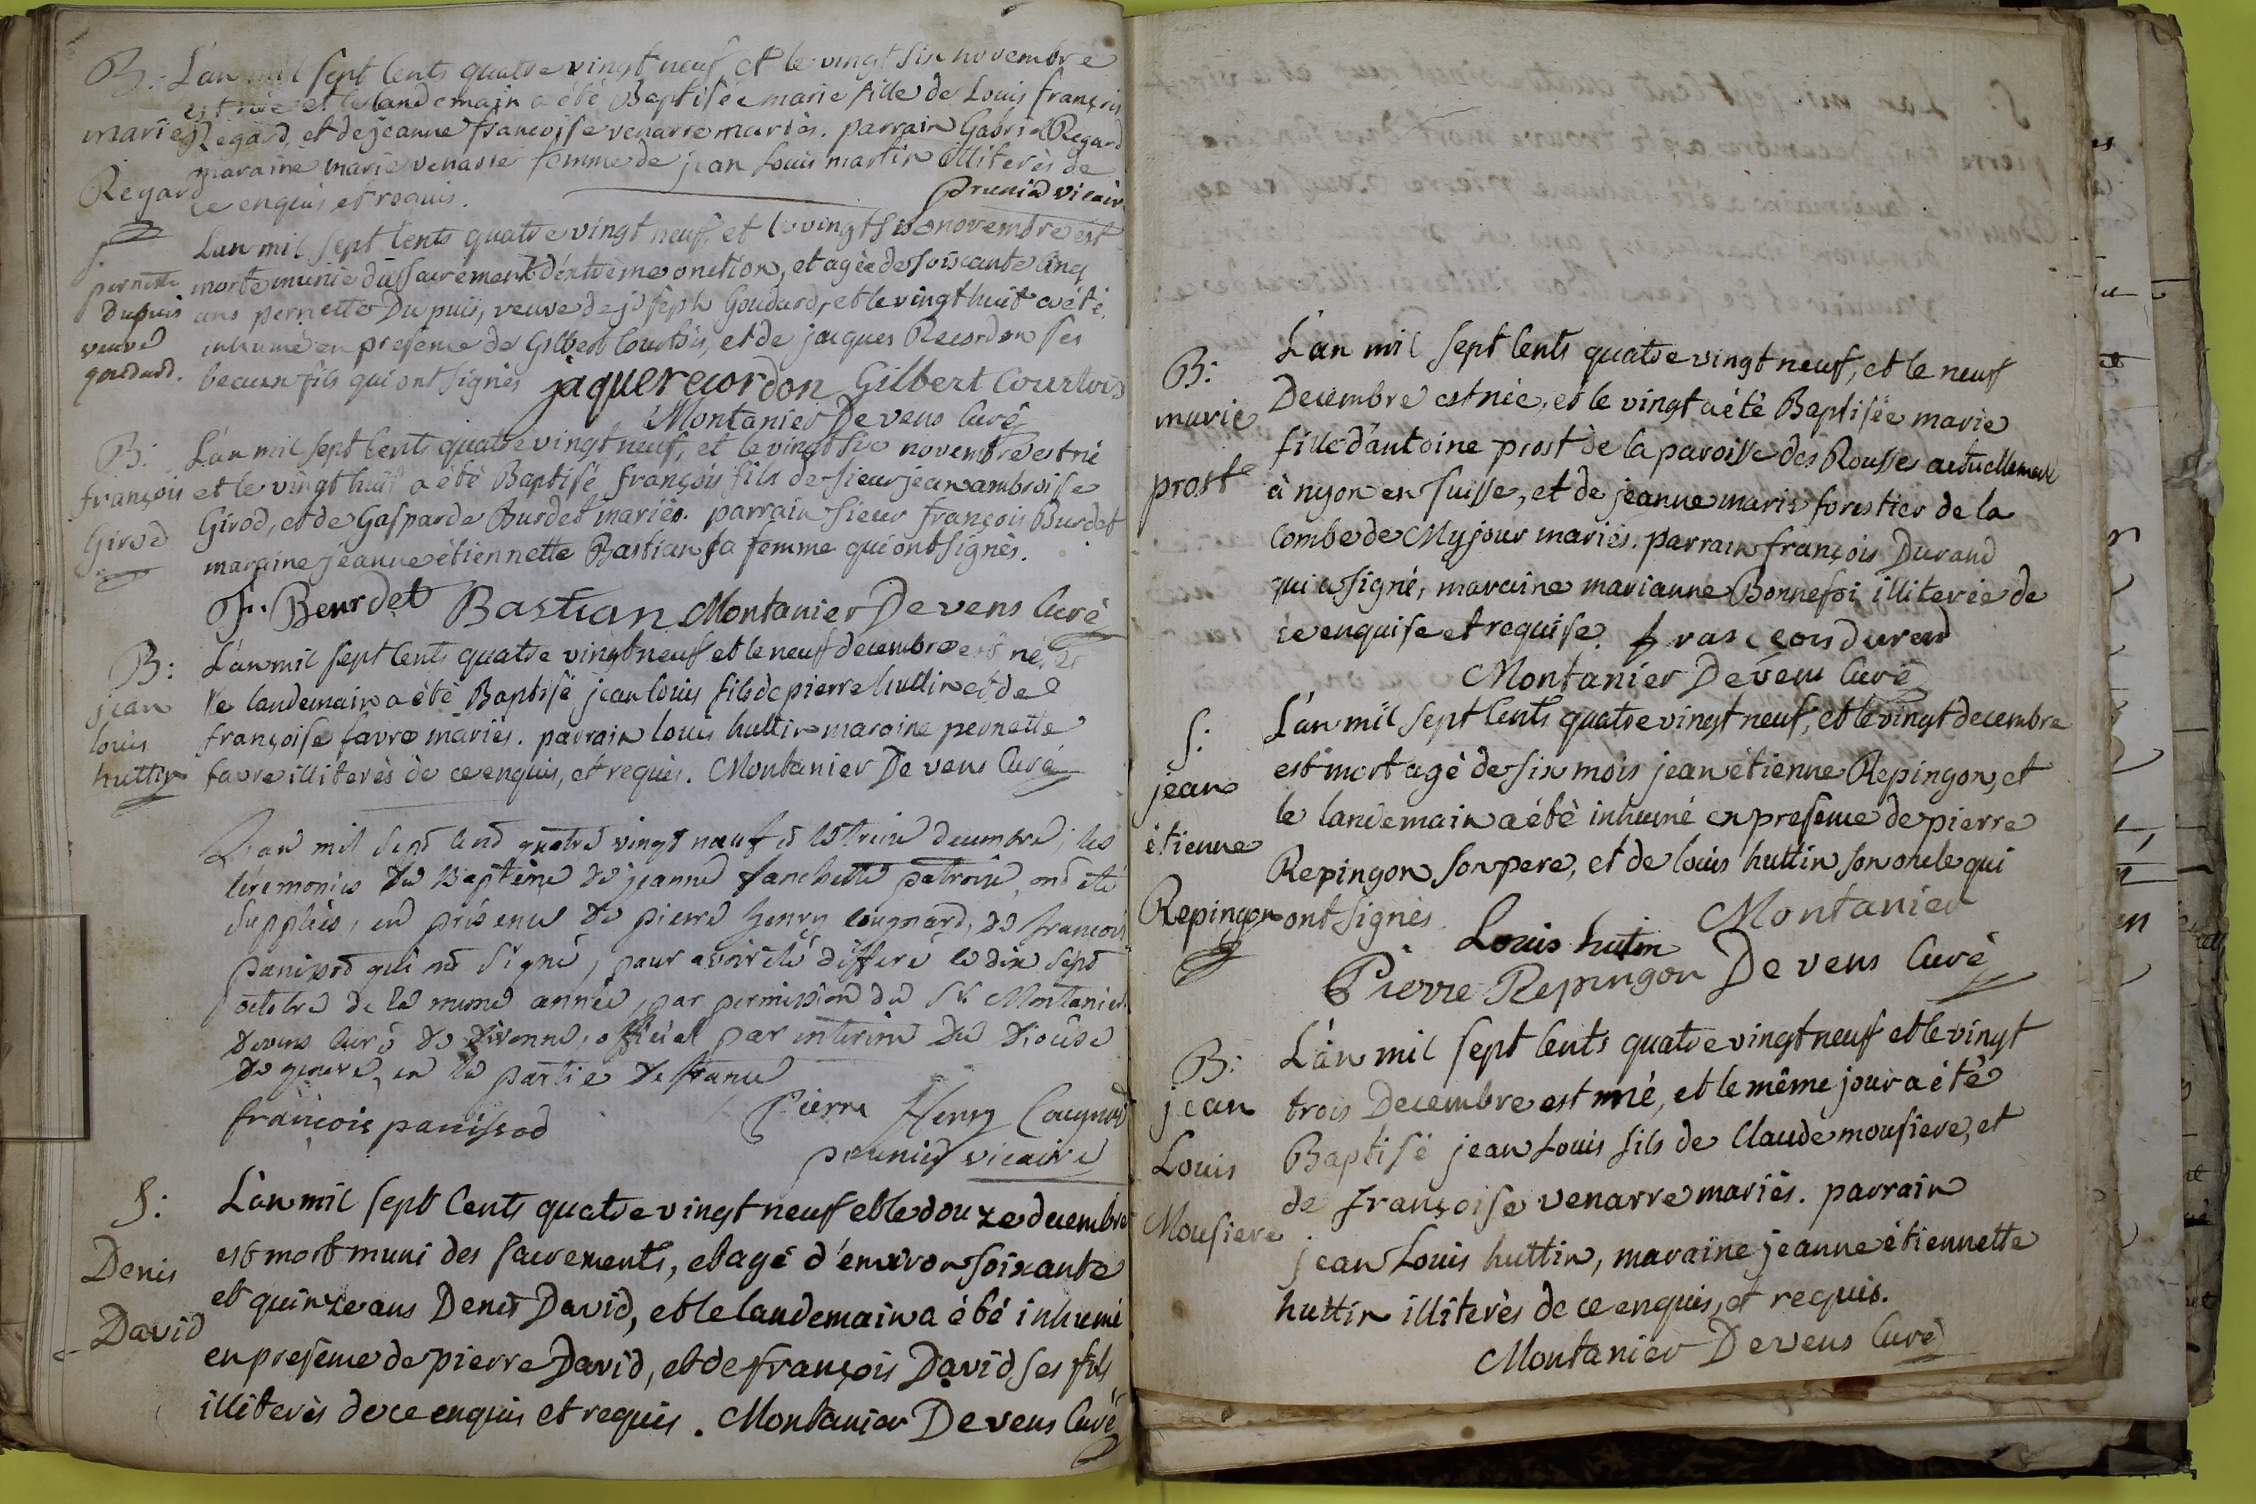 B: L'an mil sept cents quatre vingt neuf et le vingt six novembre
est née et le landemain a été Baptisée marie fille de Louis françois
marie Regard, et de jeanne francoise venarre mariés. parrain Gabriel Regard
maraine marie venarre femme de jean Louis martin illiterès de
Regard ce enquis et requis. Prunier vicaire
S. L'an mil sept cents quatre vingt neuf, et le vingt six novembre est
pernette morte munie du sacrement d'éxtrème onction, et agée de soixante cinq
dupuis ans pernette Du puis, veuve de joseph Goudard, et le vingt huit a été
veuve inhumé en presence de Gilbert Courtois, et de jacques Recordon ses
goudard. beaux fils qui ont signés jaque recordon Gilbert Courtois
Montanier De vens Curé
B: L'an mil sept cents quatre vingt neuf, et le vingt six novembre est né
françois et le vingt huit a été Baptisé françois fils de sieur jean ambroise
Girod Girod, et de Gasparde Burdet mariés. parrain sieur françois Burdet
maraine jeanne étiennette Bastian sa femme qui ont signés.
F. Beurdet Bastian Montanier De vens Curé
B: L'an mil sept cents quatre vingt neuf et le neuf decembre est né, et
jean le landemain a été Baptisé jean louis fils de pierre huttin et de
louis françoise favre mariés. parrain louis huttin maraine pernette
huttin favre illiterès de ce enquis, et requis. Montanier De vens Curé
L'an mil sept cent quatre vingt neuf et le treize decembre, les
cérémonies du Baptême de jeanne fanchette patroix, ont été
supplées, en présence de pierre henry cougnard, de francois
panissod qui ont signé, pour avoir été différé le dix sept
octobre de la meme année, par permission du Sr. Montanier
devens curé de divonne, official par interim du diocèse
de geneve, en la partie de france
françois panissod Pierre Henry Cougnard
prunier vicaire
S: L'an mil sept Cents quatre vingt neuf et le douze decembre
est mort muni des sacrements, et agé d'environ soixante
Denis et quinze ans Denis David, et le landemain a été inhumé
David en presence de pierre David, et de françois David, ses fils
illiterès de ce enquis et requis. Montanier De vens Curé
L'an mil sept cents quatre vingt neuf, et le neuf
B: Decembre est née, et le vingt a été Baptisée marie
marie fille d'antoine prost de la paroisse des Rousses actuellement
prost à nyon en suisse, et de jeanne marie forestier de la
Combe de Myjour mariés. parrain françois Durand
qui a signé, maraine marianne Bonnefoi illiterée de
ce enquise et requise. frasceois durand
Montanier De vens Curé
S: L'an mil sept cents quatre vingt neuf, et le vingt decembre
jean est mort agé de six mois jean étienne Repingon, et
étienne le landemain a été inhumé en presence de pierre
Repingon son pere, et de louis huttin son oncle qui
Repingon ont signés Louis hutin Montanier
Pierre Repingon De vens Curé
B: L'an mil sept cents quatre vingt neuf et le vingt
jean trois Decembre est né, et le même jour a été
Louis Baptisé jean Louis fils de Claude mousiere, et
Mousiere de françoise venarre mariés. parrain
jean Louis huttin, maraine jeanne étiennette
huttin illiterès de ce enquis, et requis.
Montanier De vens Curé